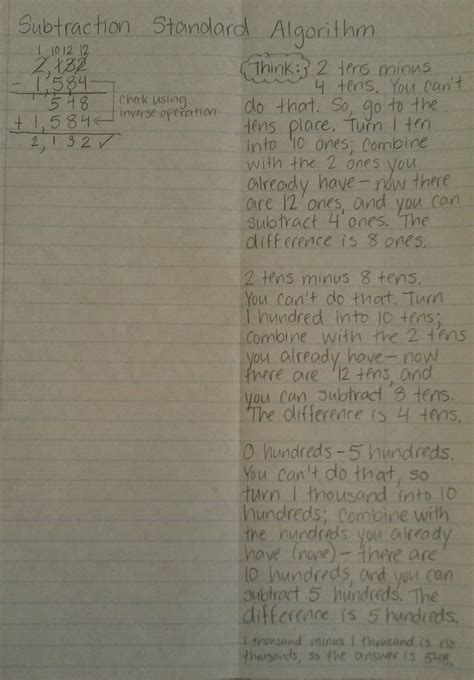 Subtraction Standard Algorithm
1 10 12 12
2,132
- 1,584
548
+ 1,584
2,132 ✓
Check using
inverse operation
Think: 2 tens minus
4 tens. You can't
do that. So, go to the
tens place. Turn 1 ten
into 10 ones; combine
with the 2 ones you
already have - now there
are 12 ones, and you can
subtract 4 ones. The
difference is 8 ones.
2 tens minus 8 tens.
You can't do that. Turn
1 hundred into 10 tens;
combine with the 2 tens
you already have - now
there are 12 tens, and
you can subtract 8 tens.
The difference is 4 tens.
0 hundreds - 5 hundreds.
You can't do that, so
turn 1 thousand into 10
hundreds; combine with
the hundreds you already
have (none) - there are
10 hundreds, and you can
subtract 5 hundreds. The
difference is 5 hundreds.
1 thousand minus 1 thousand is no
thousands, so the answer is 548.